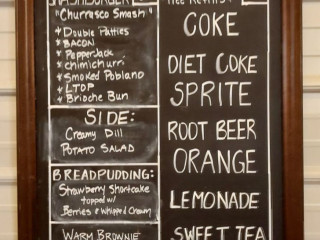 SMASHBURGER
"Churrasco Smash"
* Double Patties
* BACON
* PepperJack
* chimichurri
* Smoked Poblano
* LTOP
* Brioche Bun
SIDE:
Creamy Dill
POTATO SALAD
BREADPUDDING:
Strawberry Shortcake
topped w/
Berries & Whipped Cream
WARM BROWNIE
COKE
DIET COKE
SPRITE
ROOT BEER
ORANGE
LEMONADE
SWEET TEA